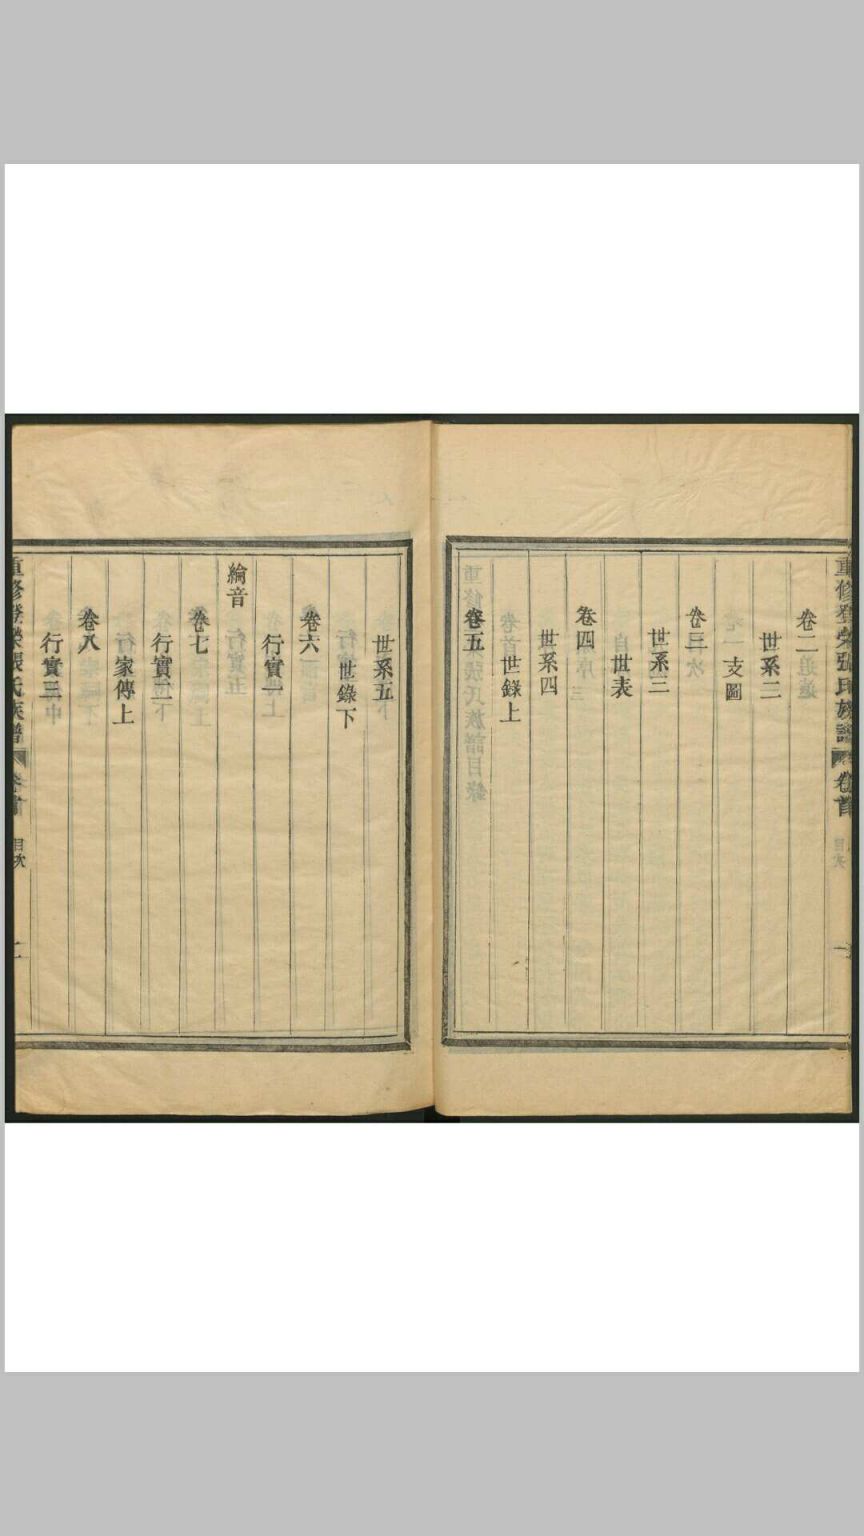 重修登榮張氏族譜 卷首 目次
卷二
世系二
支圖
卷三
世系三
世表
卷四
世系四
世錄上
卷五
世系五
世錄下
卷六
行實一
綸音
卷七
行實二
家傳上
卷八
行實三
重修登榮張氏族譜 卷首 目次 二